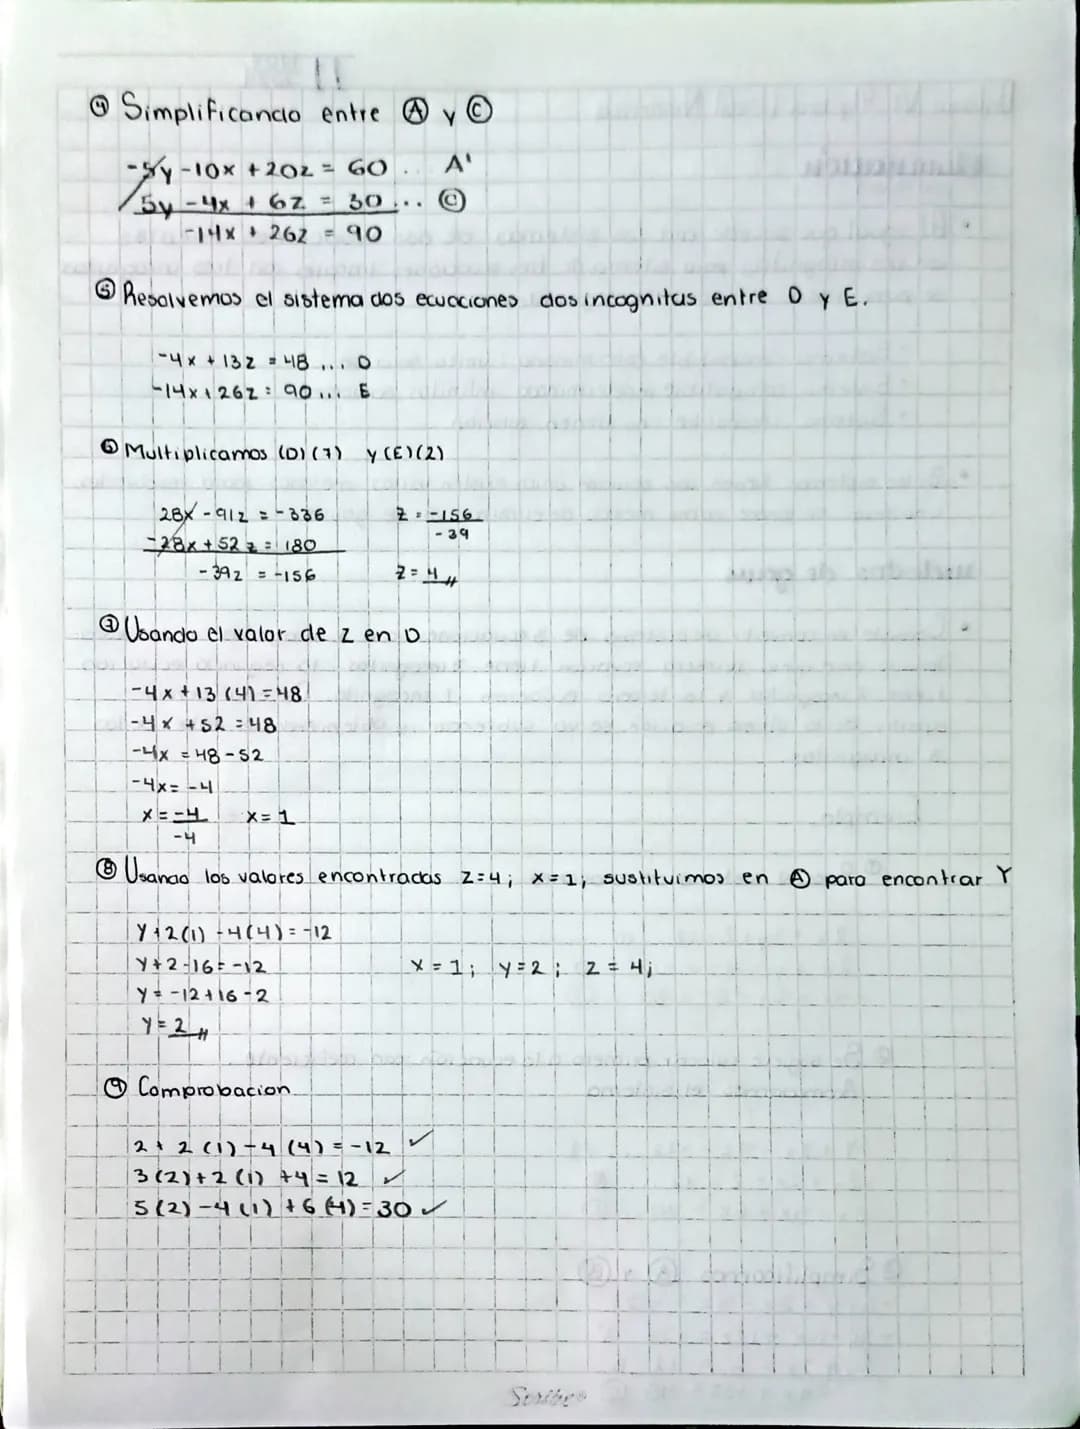 ④ Simplificando entre Ⓐ y Ⓒ
-5y -10x + 20z = 60 .. A'
5y - 4x + 6z = 30 ... Ⓒ
-14x + 26z = 90
⑤ Resolvemos el sistema dos ecuaciones dos incognitas entre D y E.
-4x + 13z = 48 ... D
-14x + 26z = 90 ... E
⑥ Multiplicamos (D)(7) y (E)(2)
28x - 91z = -336
-28x + 52z = 180
-39z = -156
z = -156
-39
z = 4
⑦ Usando el valor de z en D
-4x + 13 (4) = 48
-4x + 52 = 48
-4x = 48 - 52
-4x = -4
x = -4 x = 1
-4
⑧ Usando los valores encontrados z=4; x=1; sustituimos en Ⓐ para encontrar Y
Y + 2(1) - 4(4) = -12
Y + 2 - 16 = -12
Y = -12 + 16 - 2
Y = 2
x = 1; y = 2; z = 4;
⑨ Comprobacion
2 + 2 (1) - 4 (4) = -12 ✓
3(2) + 2(1) + 4 = 12 ✓
5(2) - 4(1) + 6(4) = 30 ✓
Scribe